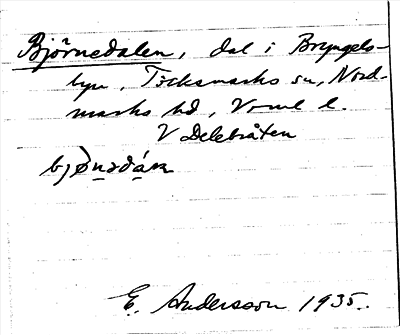 Björnedalen, dal i Bryngels-
byn, Töcksmarks sn, Nord-
marks hd, Vrml l.
V Delebråten
E. Andersson 1935.